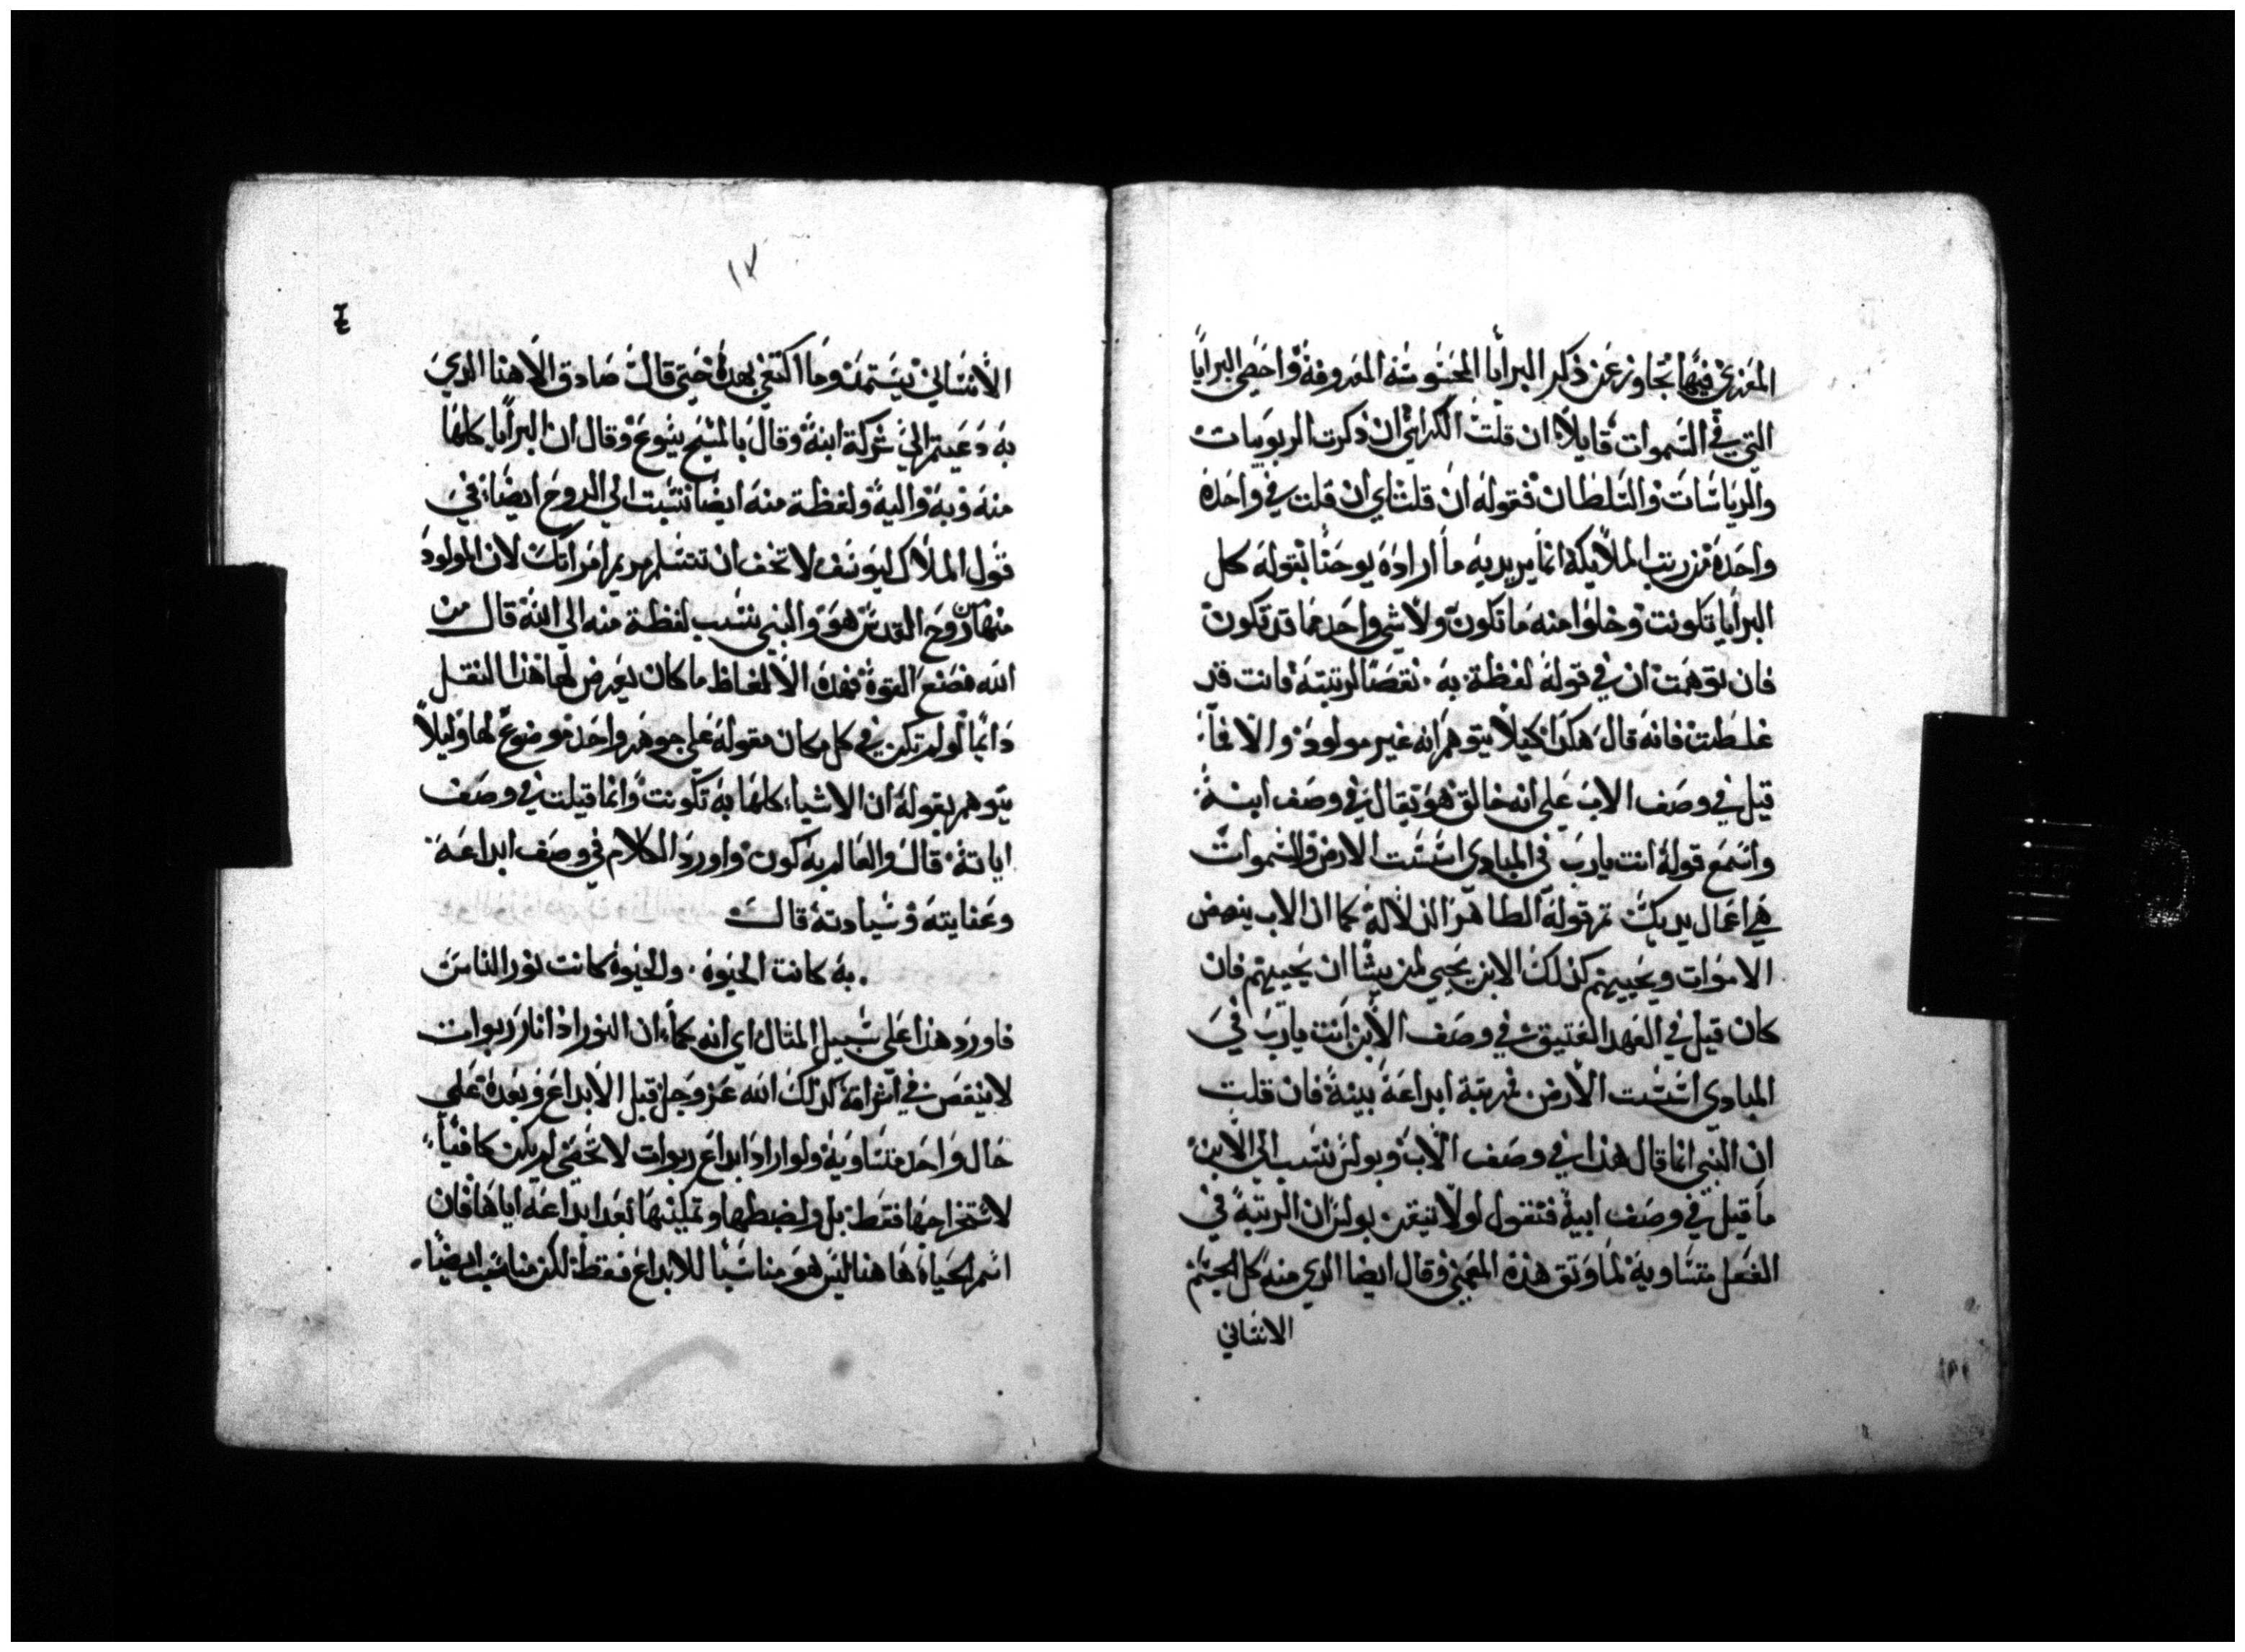 المغزي فيها تجاوز عن ذكر البرايا المحسوسة المعروفة واحصي البرايا
التي في السموات قايلاً ان قلت الكراسي ان ذكرت الربوبيات
والرياسات والسلطان فقوله ان قلت اي ان قلت في واحده
واحدة من رتب الملايكة انما يريد به ما اراده يوحنا بقوله كل
البرايا به تكونت وخلوا منه ما تكون ولا شي واحد مما قد تكون
فان توهمت ان في قوله لفظة به نقصاً لرتبته فانت قد
غلطت فانه قال هكذا كيلا يتوهم انه غير مولود والا فما
قيل في وصف الاب علي انه خالق هو يقال في وصف ابنه
واسمع قوله انت يارب في المبادي اسست الارض والسموات
هي اعمال يديك ثم قوله الطاهر الدلالة كما ان الاب ينهض
الاموات ويحييهم كذلك الابن يحيي لمن يشا ان يحييهم فان
كان قيل في العهد العتيق في وصف الابن انت يارب في
المبادي اسست الارض فمرتبة ابداعه بينة فان قلت
ان النبي انما قال هذا في وصف الاب وبولس نسب الي الابن
ما قيل في وصف ابيه فنقول لولا تيقن بولس ان الرتبة في
الفعل متساوية لما وثق هذه المعني وقال ايضا الذي منه كل الجسم
الانساني
١٧
الانساني يستمد وما اكتفي بهذه حتي قال صادق الاهنا الذي
به دعيتم الي شركة ابنه وقال بالمسيح يسوع وقال ان البرايا كلها
منه وبه واليه ولفظة منه ايضا نسبت الي الروح ايضا في
قول الملاك ليوسف لا تخف ان تتسلم مريم امراتك لان المولود
منها من روح القدس هو والنبي نسب لفظة منه الي الله قال من
الله نصنع القوة فهذه الالفاظ ما كان يعرض لها هذا النقل
دائماً لو لم تكن في كل مكان مقولة علي جوهر واحد موضوع لها وليلا
يتوهم بقوله ان الاشياء كلها به تكونت وانما قيلت في وصف
اياته قال والعالم به كون واورد الكلام في وصف ابداعه
وعنايته وسيادته قال
به كانت الحيوه والحيوة كانت نور الناس
فاورد هذا علي سبيل المثال اي انه كما ان النور اذا نار ربوات
لا ينقص في كذلك الله عز وجل قبل الابداع وبعده علي
حال واحدة متساوية ولو اراد ابداع ربوات لا تحصي لم يكن كافياً
لاستخراجها فقط بل ولضبطها وتمكينها بعد ابداعه اياها فان
اسم الحياة هاهنا ليس هو مناسباً للابداع فقط لكن مناسب ايضاً